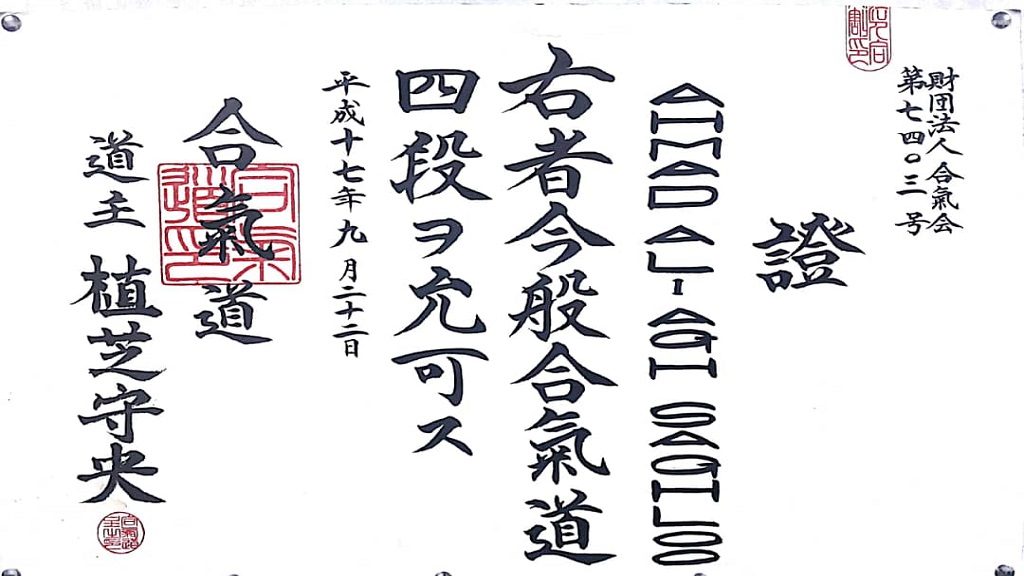 財団法人 合氣会
第七四〇三号
證
AHMAD ALI-AGH SAGHLOO
右者今般合氣道
四段ヲ允可ス
平成十七年九月二十二日
合氣道
道主 植芝守央